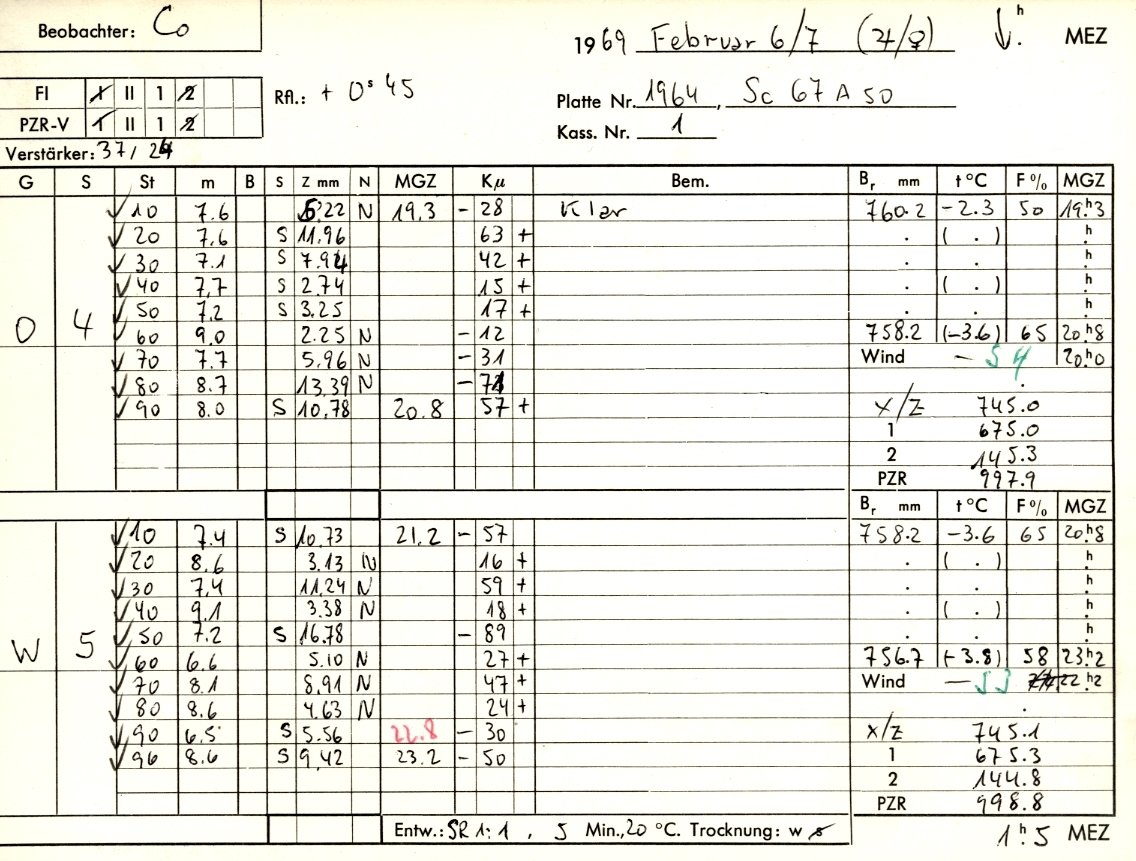 Beobachter: Co
1969 Februar 6/7 (♃/♀) ↓.ʰ MEZ
FI I II 1 2
Rfl.: + 0ˢ 45
Platte Nr. 1964, Sc 67 A 50
PZR-V I II 1 2
Kass. Nr. 1
Verstärker: 37/24
G S St m B S Z mm N MGZ Kμ Bem. Bᵣ mm t°C F% MGZ
10 7.6 5.22 N 19.3 - 28 Klar 760.2 -2.3 50 19ʰ.3
20 7.6 S 11.96 63 + . ( . ) ʰ.
30 7.1 S 7.94 42 + . . ʰ.
40 7.7 S 2.74 15 + . ( . ) ʰ.
50 7.2 S 3.25 17 + . . ʰ.
O 4 60 9.0 2.25 N - 12 758.2 (-3.6) 65 20ʰ.8
70 7.7 5.96 N - 31 Wind - 20ʰ.0
80 8.7 13.39 N - 71 .
90 8.0 S 10.78 20.8 57 + X/Z 745.0
1 675.0
2 145.3
PZR 997.9
Bᵣ mm t°C F% MGZ
10 7.4 S 10.73 21.2 - 57 758.2 -3.6 65 20ʰ.8
20 8.6 3.13 N 16 + . ( . ) ʰ.
30 7.4 11.24 N 59 + . . ʰ.
40 9.1 3.38 N 18 + . ( . ) ʰ.
50 7.2 S 16.78 - 89 . . ʰ.
W 5 60 6.6 5.10 N 27 + 756.7 (-3.8) 58 23ʰ.2
70 8.1 8.91 N 47 + Wind - 22ʰ.2
80 8.6 4.63 N 24 + .
90 6.5 S 5.56 22.8 - 30 X/Z 745.1
96 8.6 S 9.42 23.2 - 50 1 675.3
2 144.8
PZR 998.8
Entw.: SR 1:1, 5 Min., 20 °C. Trocknung: w s
1ʰ.5 MEZ